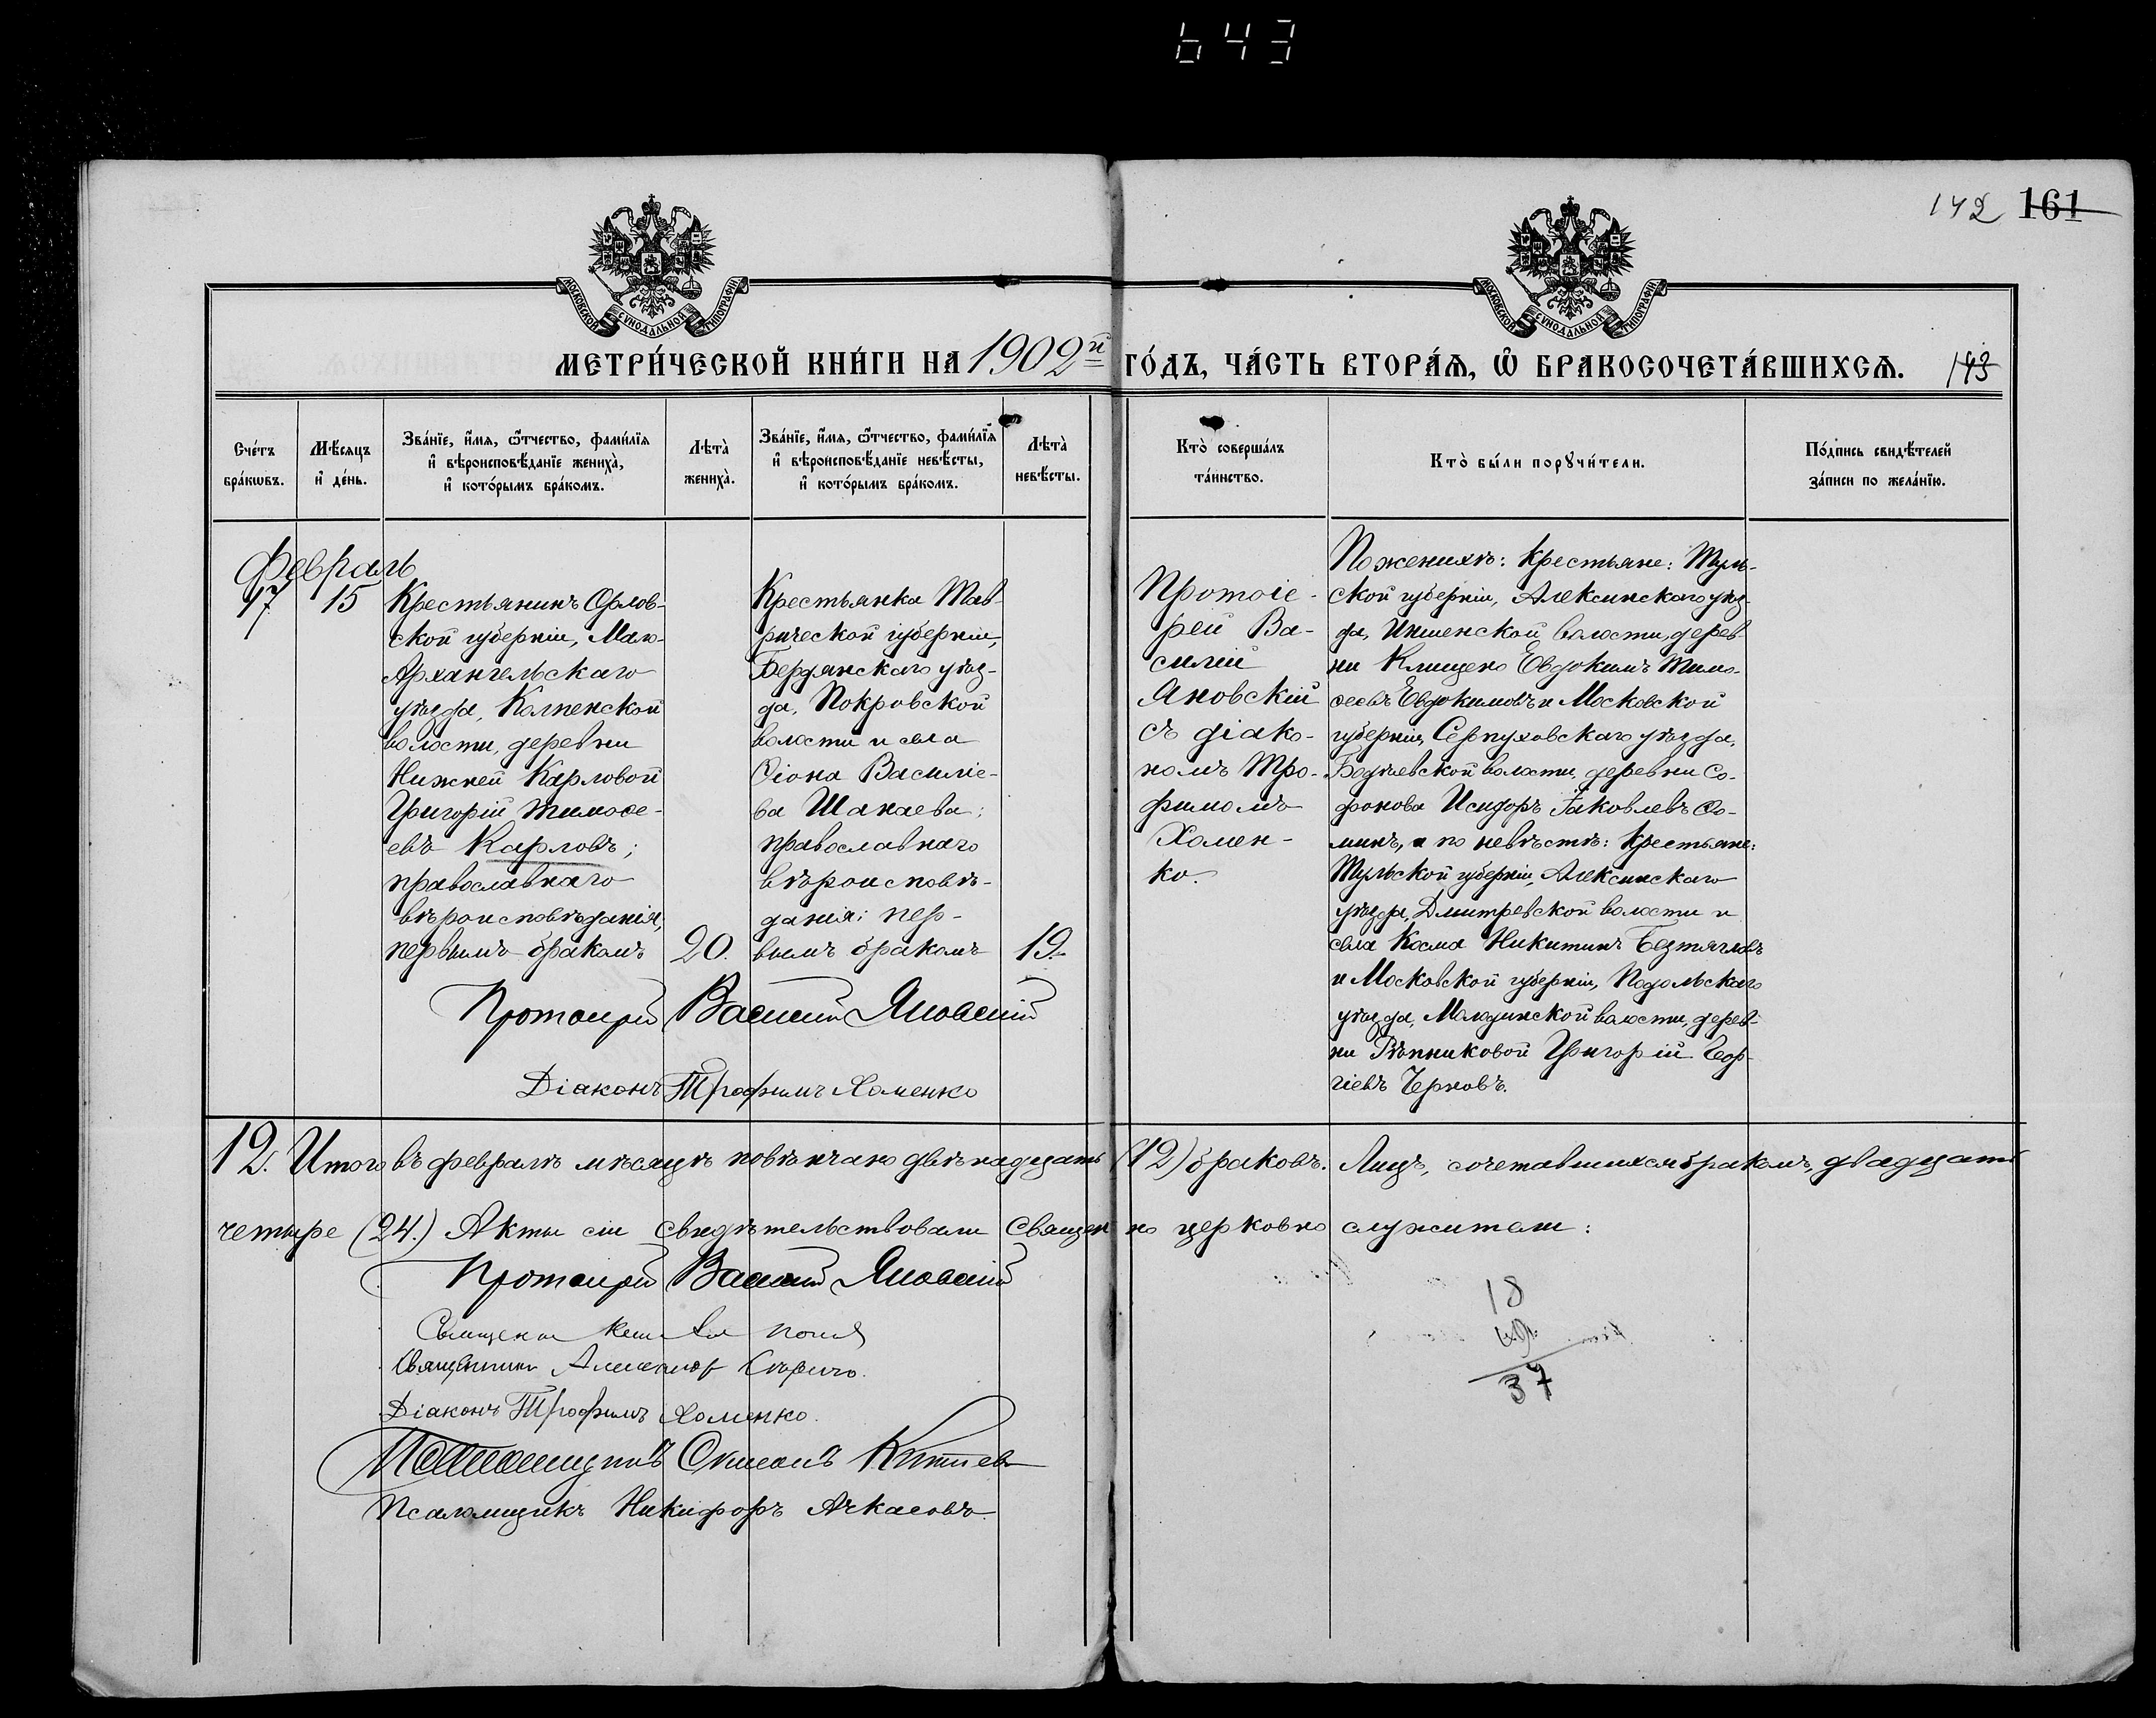 643
142 161
МОСКОВСКОЙ СѴНОДАЛЬНОЙ ТИПОГРАФІИ
МОСКОВСКОЙ СѴНОДАЛЬНОЙ ТИПОГРАФІИ
МЕТРИ́ЧЕСКОЙ КНИ́ГИ НА 1902й ГО́ДЪ, ЧА́СТЬ ВТОРА́Ѧ, Ѽ БРАКОСОЧЕТА́ВШИХСѦ. 143
Сче́тъ
бра́кѡвъ.
Мѣ́сяцъ
и҆ де́нь.
Зва́нїе, и҆́мя, ѻ҆́тчество, фами́лїя
и҆ вѣроисповѣ́данїе жениха̀,
и҆ кото́рымъ бра́комъ.
Лѣта̀
жениха̀.
Зва́нїе, и҆́мя, ѻ҆́тчество, фами́лїя
и҆ вѣроисповѣ́данїе невѣ́сты,
и҆ кото́рымъ бра́комъ.
Лѣта̀
невѣ́сты.
Кто̀ соверша́лъ
та́инство.
Кто̀ бы́ли порꙋчи́тели.
По́дпись свидѣ́телей
за́писи по жела́нїю.
Февраль
17 15
Крестьянинъ Орлов-
ской губерніи, Мало-
Архангельскаго
уѣзда, Колпенской
волости, деревни
Нижней Карловой
Григорій Тимоѳе-
евъ Карловъ;
православнаго
вѣроисповѣданія,
первымъ бракомъ
20.
Крестьянка Тав-
рической губерніи,
Бердянскаго уѣз-
да, Покровской
волости и села
Ѳіона Василіе-
ва Шакаева;
православнаго
вѣроисповѣ-
данія; пер-
вымъ бракомъ
19.
Протоіе-
рей Ва-
силій
Яновскій
съ діако-
номъ Тро-
фимомъ
Хомен-
ко.
По женихѣ: Крестьяне: Туль-
ской губерніи, Алексинскаго уѣз-
да, волости, дерев-
ни Евдокимъ Тимо-
ѳеевъ Евдокимовъ и Московской
губерніи, Серпуховскаго уѣзда,
волости, деревни Со-
фонова Исидоръ Іаковлевъ Ѳо-
минъ, а по невѣстѣ: Крестьяне:
Тульской губерніи, Алексинскаго
уѣзда, Дмитревской волости и
села Косма Никитинъ Безтягловъ
и Московской губерніи, Подольскаго
уѣзда, Молодинской волости, дерев-
ни Рѣпниковой Григорій Геор-
гіевъ Черновъ.
Протоіерей Василій Яновскій
Діаконъ Трофимъ Хоменко
12. Итого въ февралѣ мѣсяцѣ повѣнчано двѣнадцать (12) браковъ. Лицъ, сочетавшихся бракомъ, двадцать
четыре (24.) Акты сіи свидѣтельствовали священно церковно служители:
Протоіерей Василій Яновскій
Священникъ
Священникъ Александръ
Діаконъ Трофимъ Хоменко.
Псаломщикъ Симеонъ
Псаломщикъ Никифоръ Ачкасовъ.
18
19
37